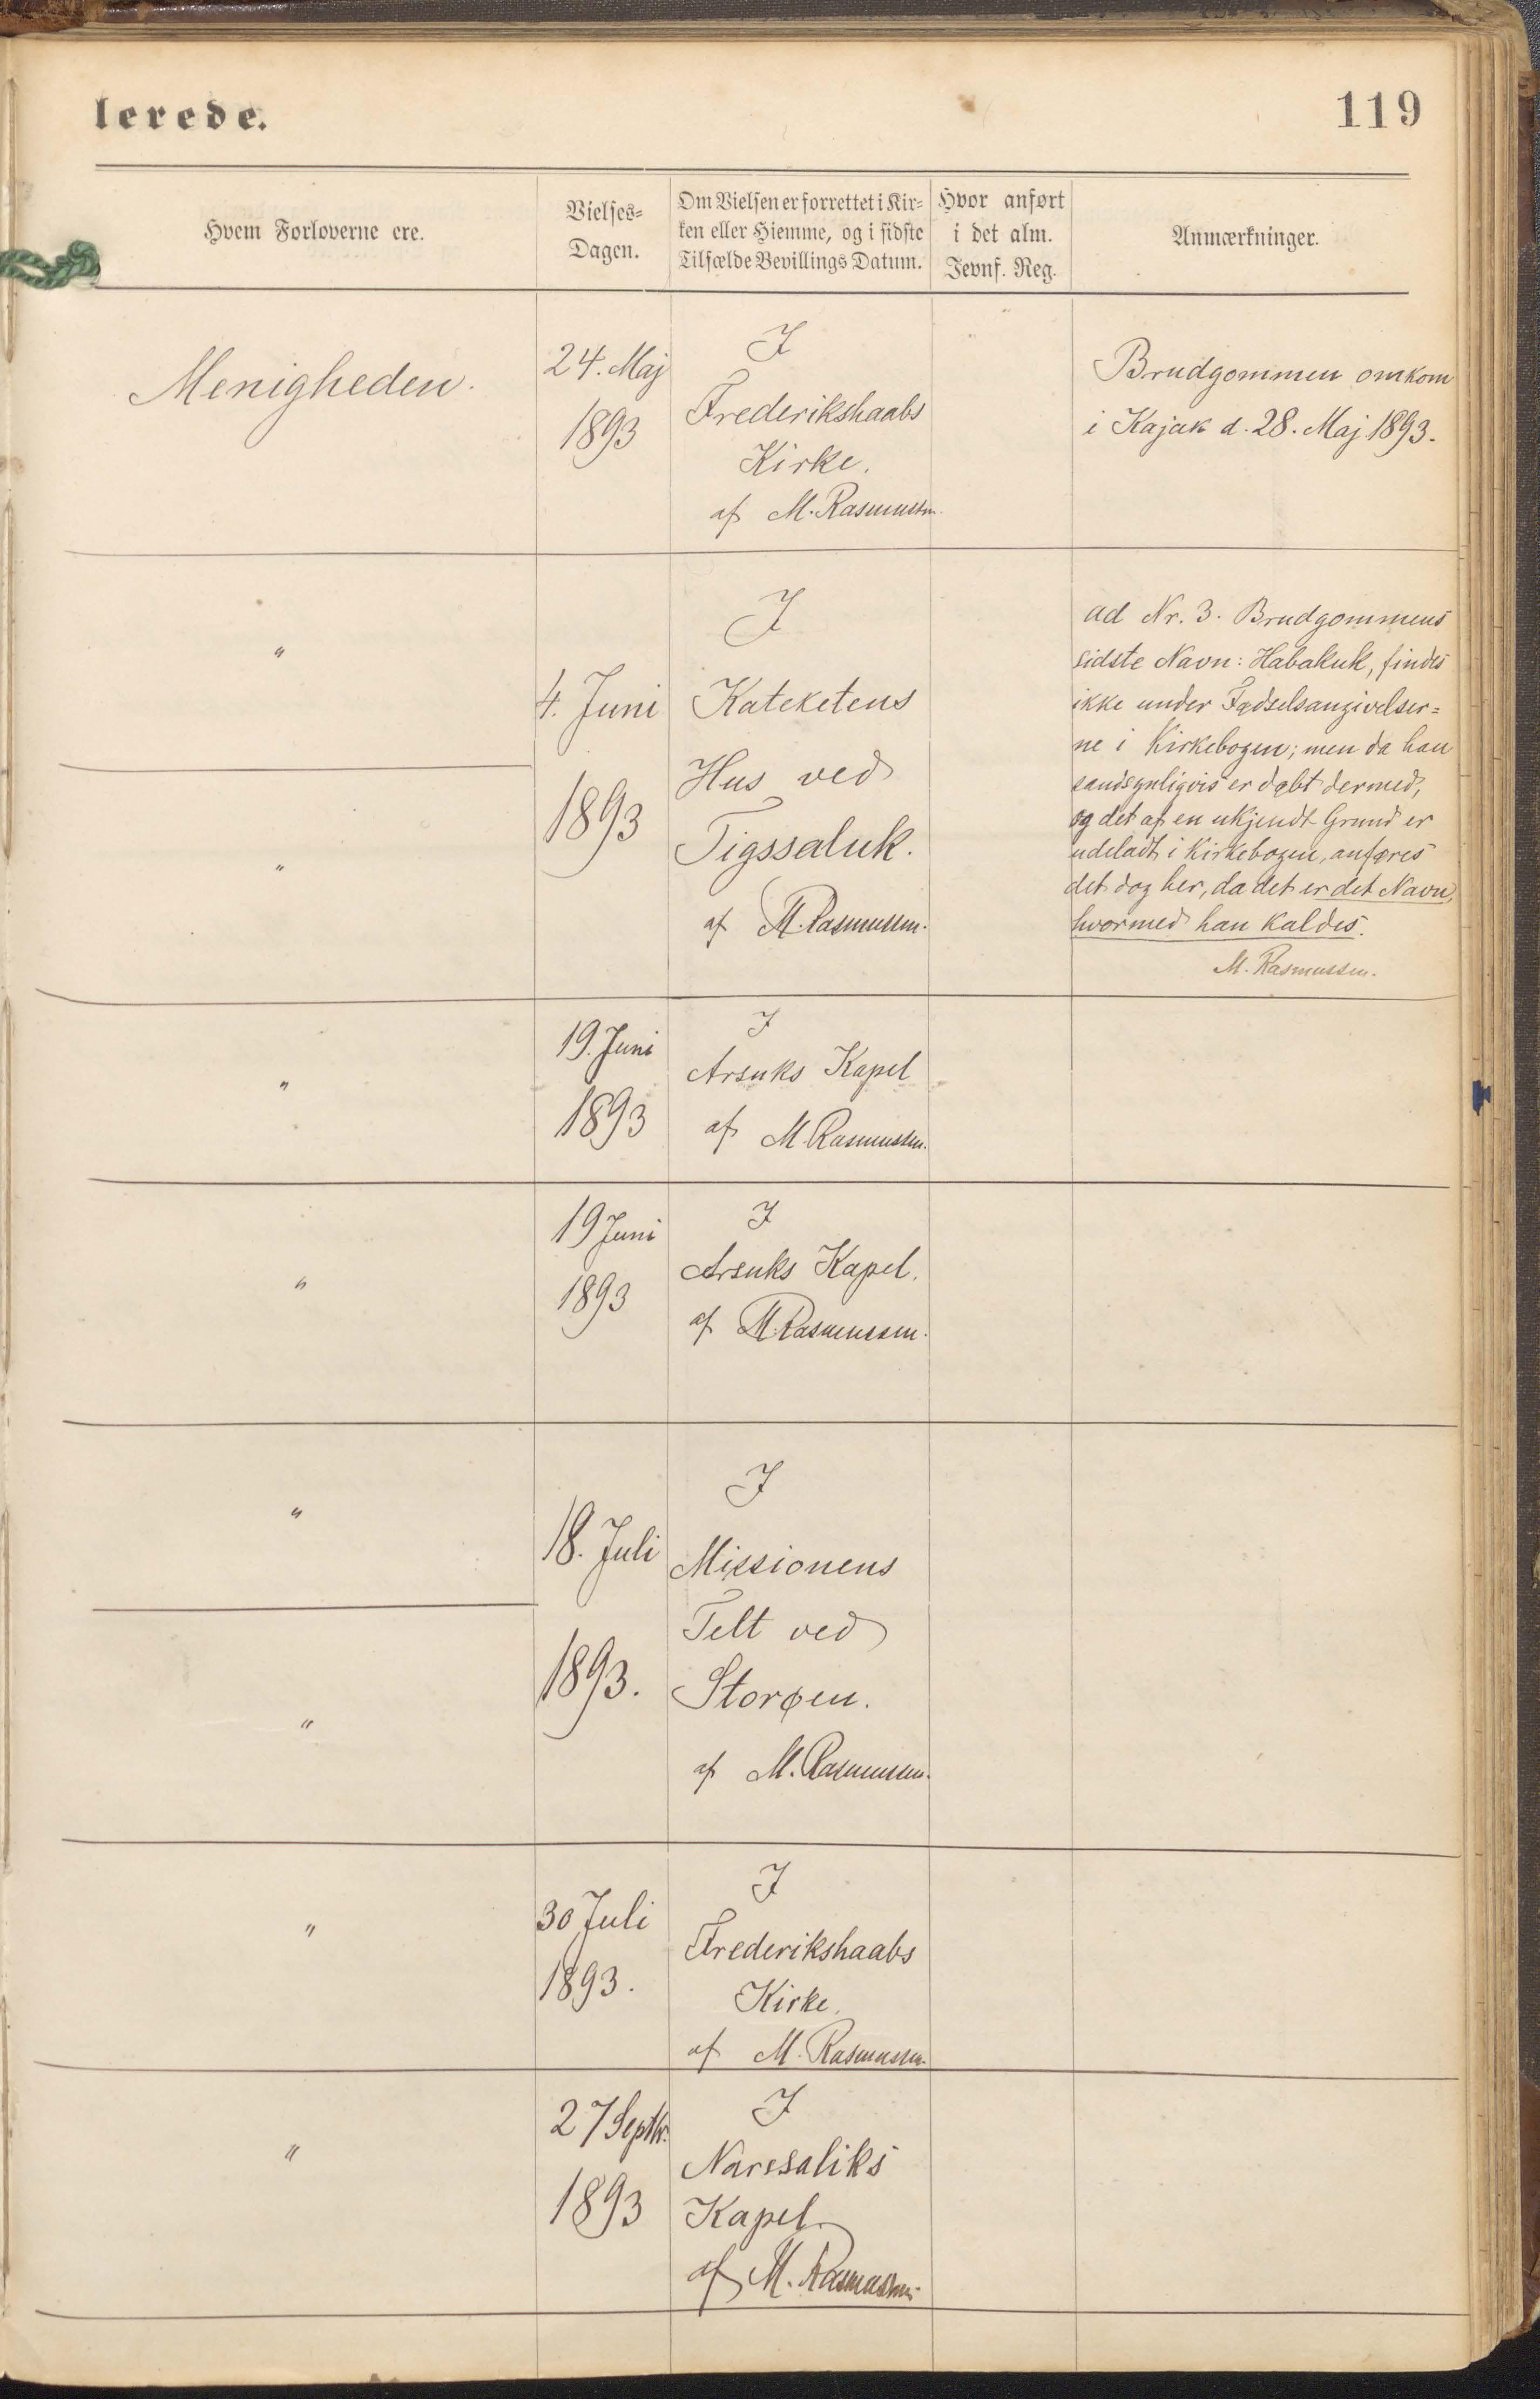 lerede.
119
Hvem Forloverne ere.
Vielses=
Dagen.
Om Vielsen er forrettet i Kir=
ken eller Hiemme, og i sidste
Tilfælde Bevillings Datum.
Hvor anført
i det alm.
Jevnf. Reg.
Anmærkninger.
Menigheden.
24. Maj
1893
I
Frederikshaabs
Kirke.
af M. Rasmussen
Brudgommen omkom
i Kajak d. 28. Maj 1893.
"
"
4. Juni
1893
I
Kateketens
Hus ved
Tigssaluk.
af M. Rasmussen.
ad Nr. 3. Brudgommens
sidste Navn: Habakuk, findes
ikke under Fødselsangivelser=
ne i Kirkebogen; men da han
sandsynligvis er døbt dermed,
og det af en ukjendt Grund er
udeladt i Kirkebogen, anføres
det dog her, da det er det Navn,
hvormed han kaldes.
M. Rasmussen.
"
19. Juni
1893
I
Arsuks Kapel
af M. Rasmussen.
"
19 Juni
1893
I
Arsuks Kapel.
af M. Rasmussen.
"
"
18. Juli
1893.
I
Missionens
Telt ved
Storøen.
af M. Rasmussen.
"
30 Juli
1893.
I
Frederikshaabs
Kirke.
af M. Rasmussen.
"
27 Septbr.
1893
I
Narssaliks
Kapel
af M. Rasmussen.